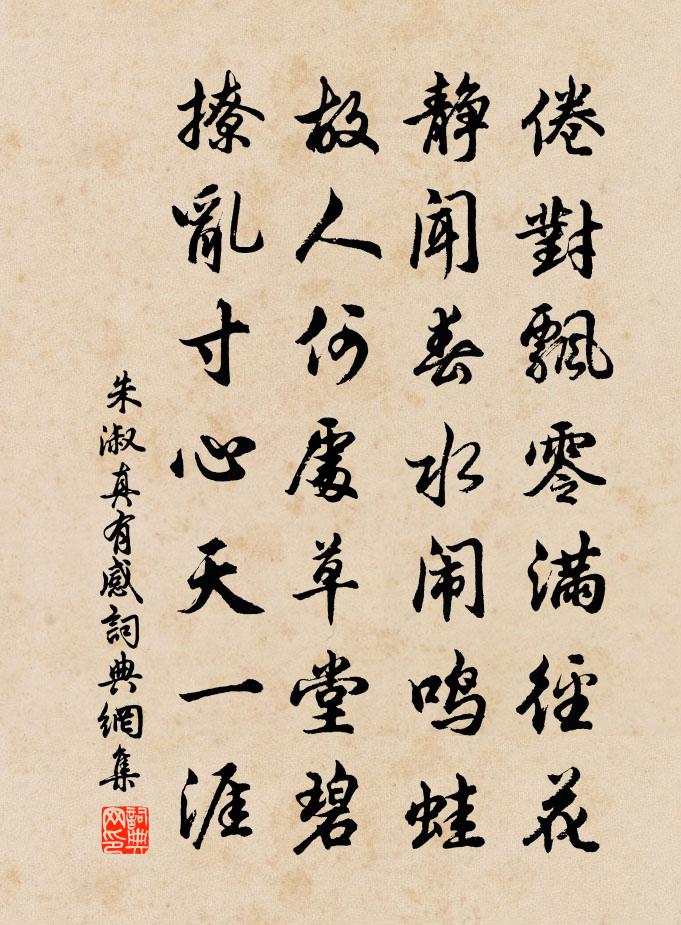 倦對飄零滿徑花
靜聞春水闹鳴蛙
故人何處草堂碧
撩亂寸心天一涯
朱淑真有感詞典網集
詞典网印